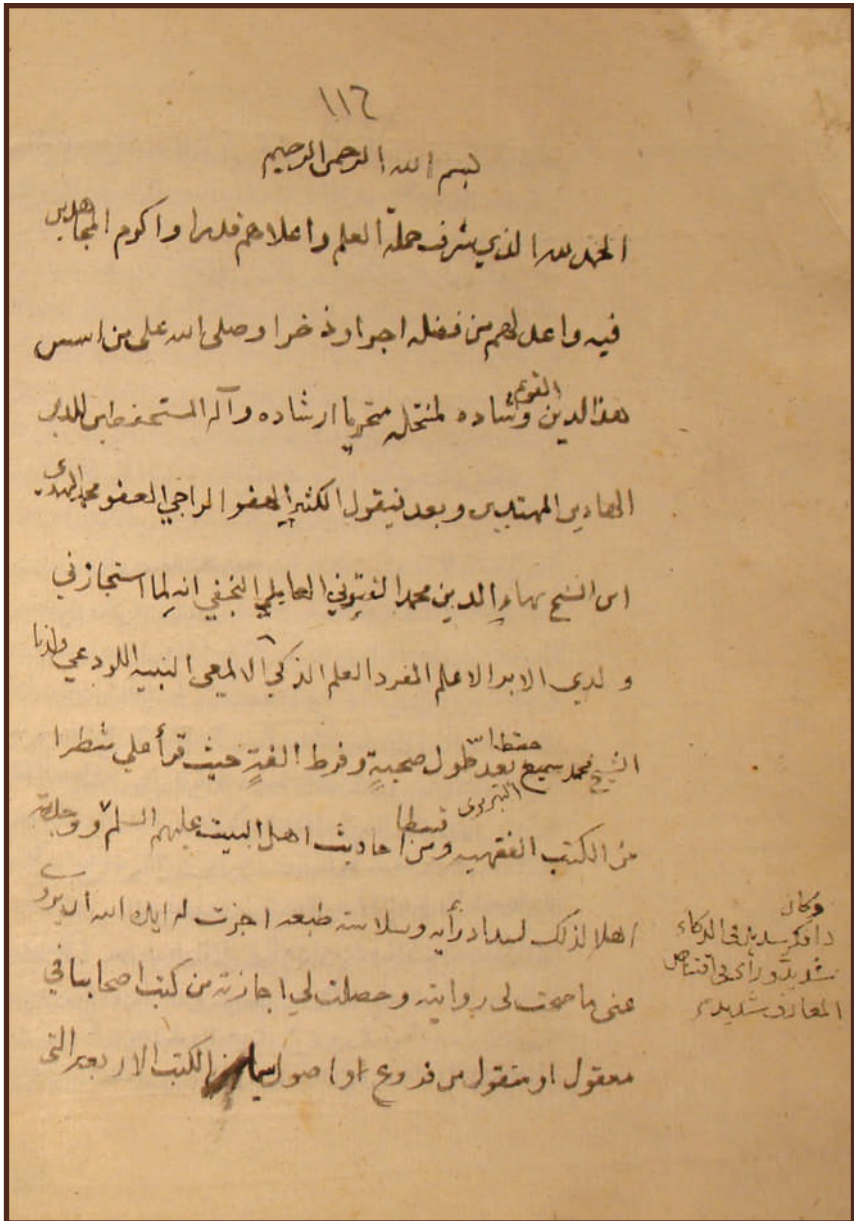 ١١٦
بسم الله الرحمن الرحيم
الحمد لله الذي شرف حملة العلم واعلاهم قدرا واكرم المجاهدين
فيه واعد لهم من فضله اجرا وذخرا وصلى الله على من اسس
هذا الدين القويم وشاده لمنتحله متحريا ارشاده وآله المستحفظين للدين
الهادين المهتدين وبعد فيقول الكثير الهفو الراجي العفو محمد المهدي
ابن الشيخ بهاء الدين محمد الفتوني العاملي النجفي انه لما استجازني
ولدي الابر الاعلم المفرد العلم الذكي الالمعي النبيه اللوذعي ولدنا
الشيخ محمد سميع التبريزي حفظه الله بعد طول صحبة وفرط الفة حيث قرأ علي شطرا
من الكتب الفقهيه وقسطا من احاديث اهل البيت عليهم السلم ووجدته
اهلا لذلك لسداد رأيه وسلامة طبعه اجزت له ايده الله ان يروي
عني ما صحت لي روايته وحصلت لي اجازته من كتب اصحابنا في
معقول او منقول من فروع او اصول الكتب الاربعة التي
وكان
ذا فكر سديد في الذكاء
شديد ورأي في اقتناص
المعارف سديد